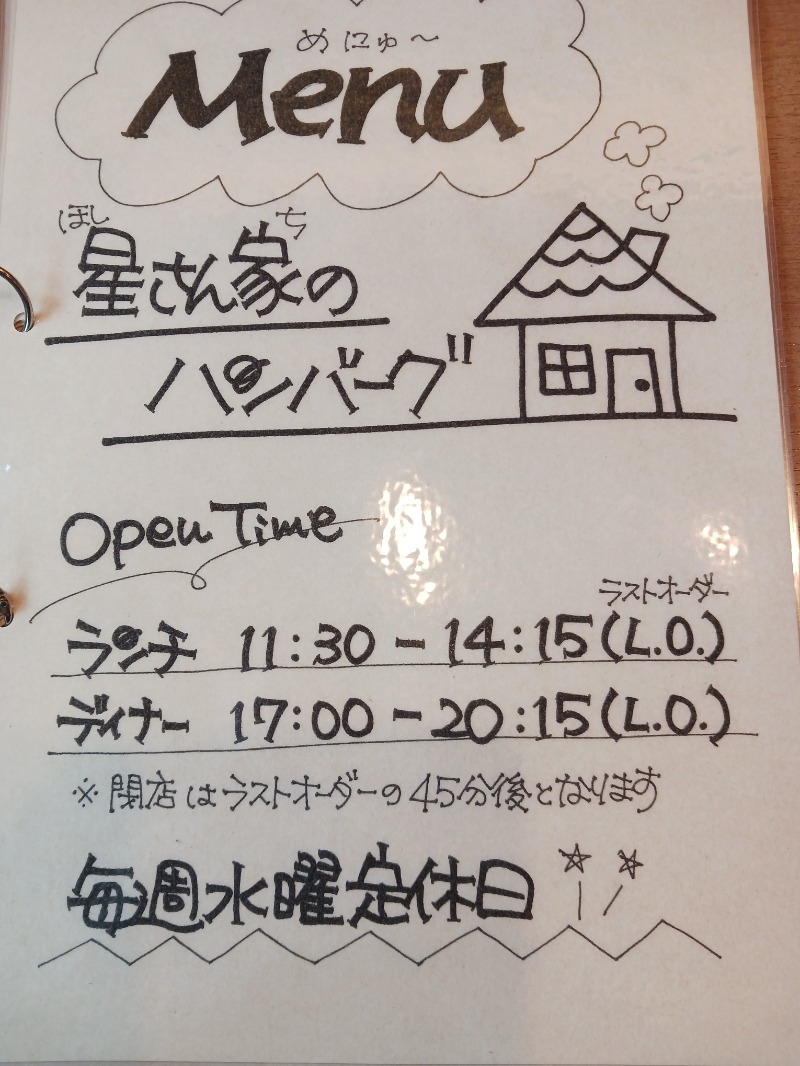 めにゅ〜
Menu
ほし ち
星さん家の
ハンバーグ
Open Time
ラストオーダー
ランチ 11:30 - 14:15(L.O.)
ディナー 17:00 - 20:15(L.O.)
※閉店はラストオーダーの45分後となります
毎週水曜定休日